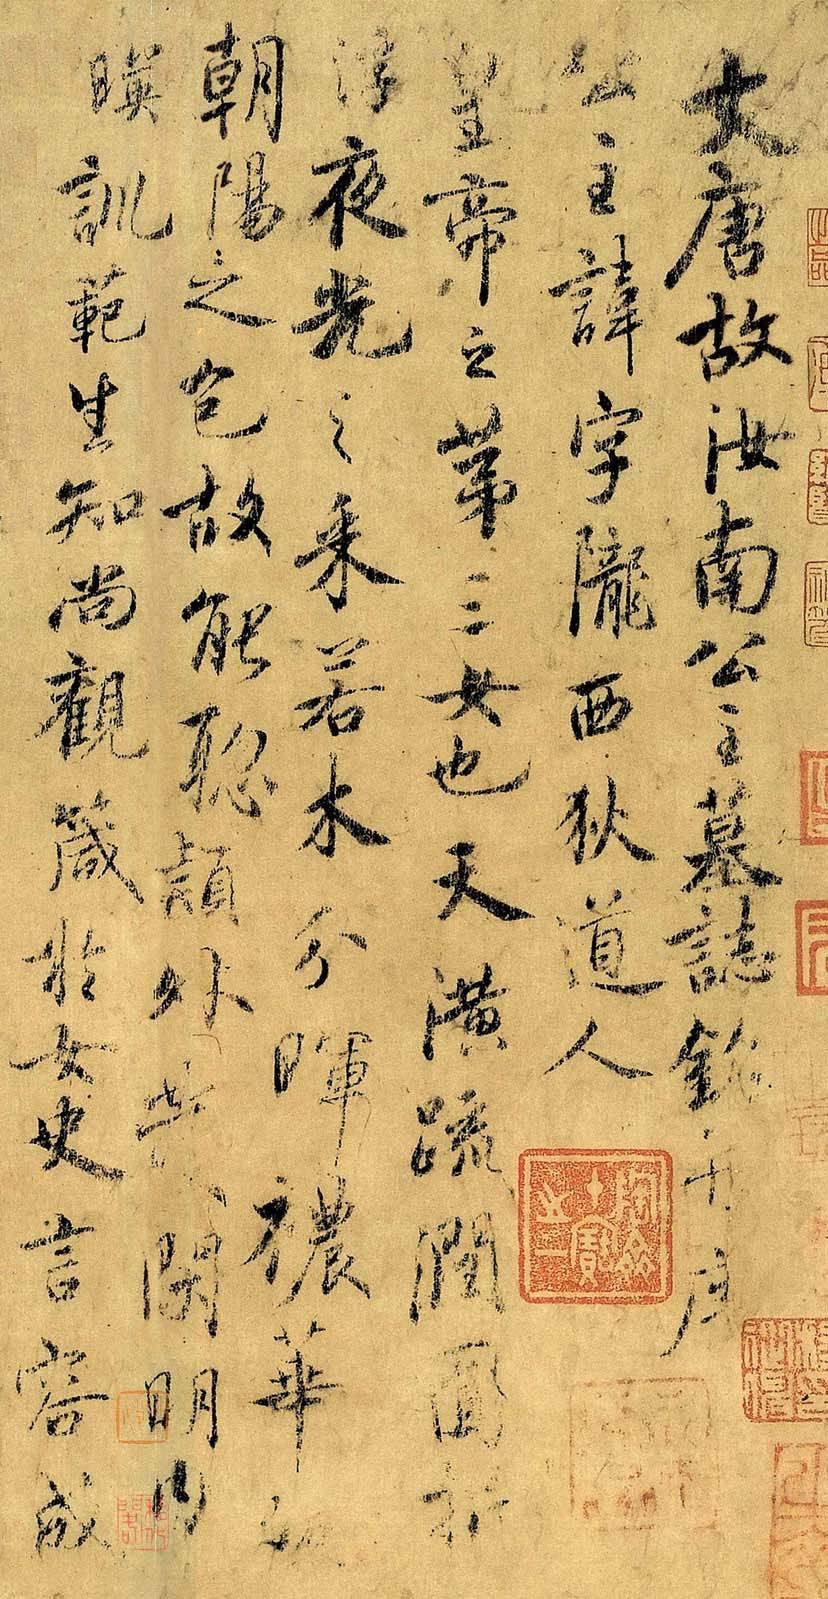 大唐故汝南公主墓誌銘并序
公主諱字隴西狄道人
皇帝之第三女也天潢疏潤圓折
浮夜光之采若木分暉襛華照
朝陽之色故能聡穎外發閑明內
暎訓範生知尚觀箴於女史言容成